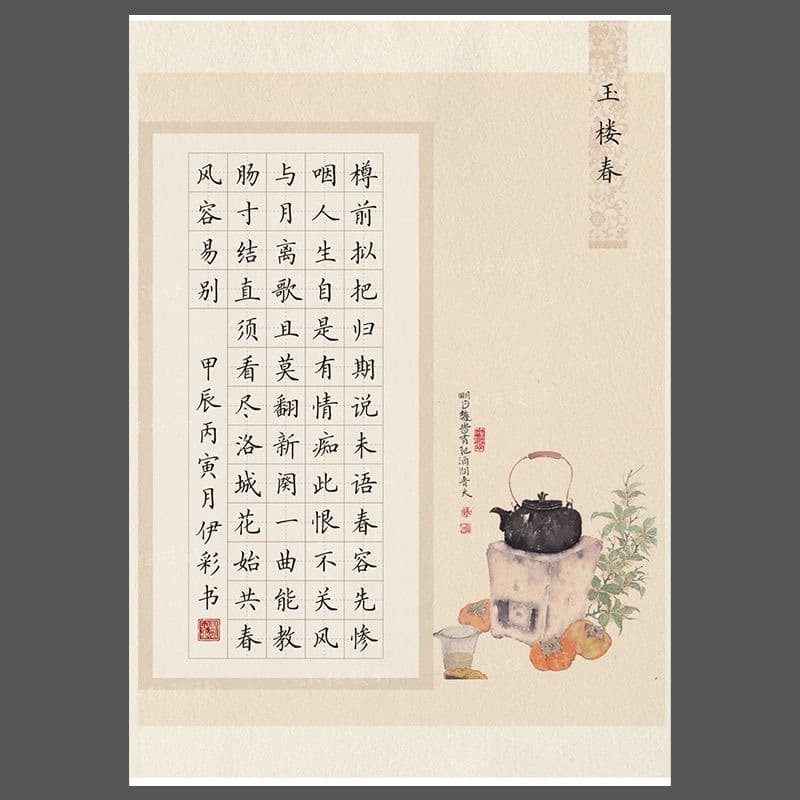 玉楼春
樽前拟把归期说未语春容先惨
咽人生自是有情痴此恨不关风
与月离歌且莫翻新阕一曲能教
肠寸结直须看尽洛城花始共春
风容易别
甲辰丙寅月伊彩书
明月幾時有把酒問青天